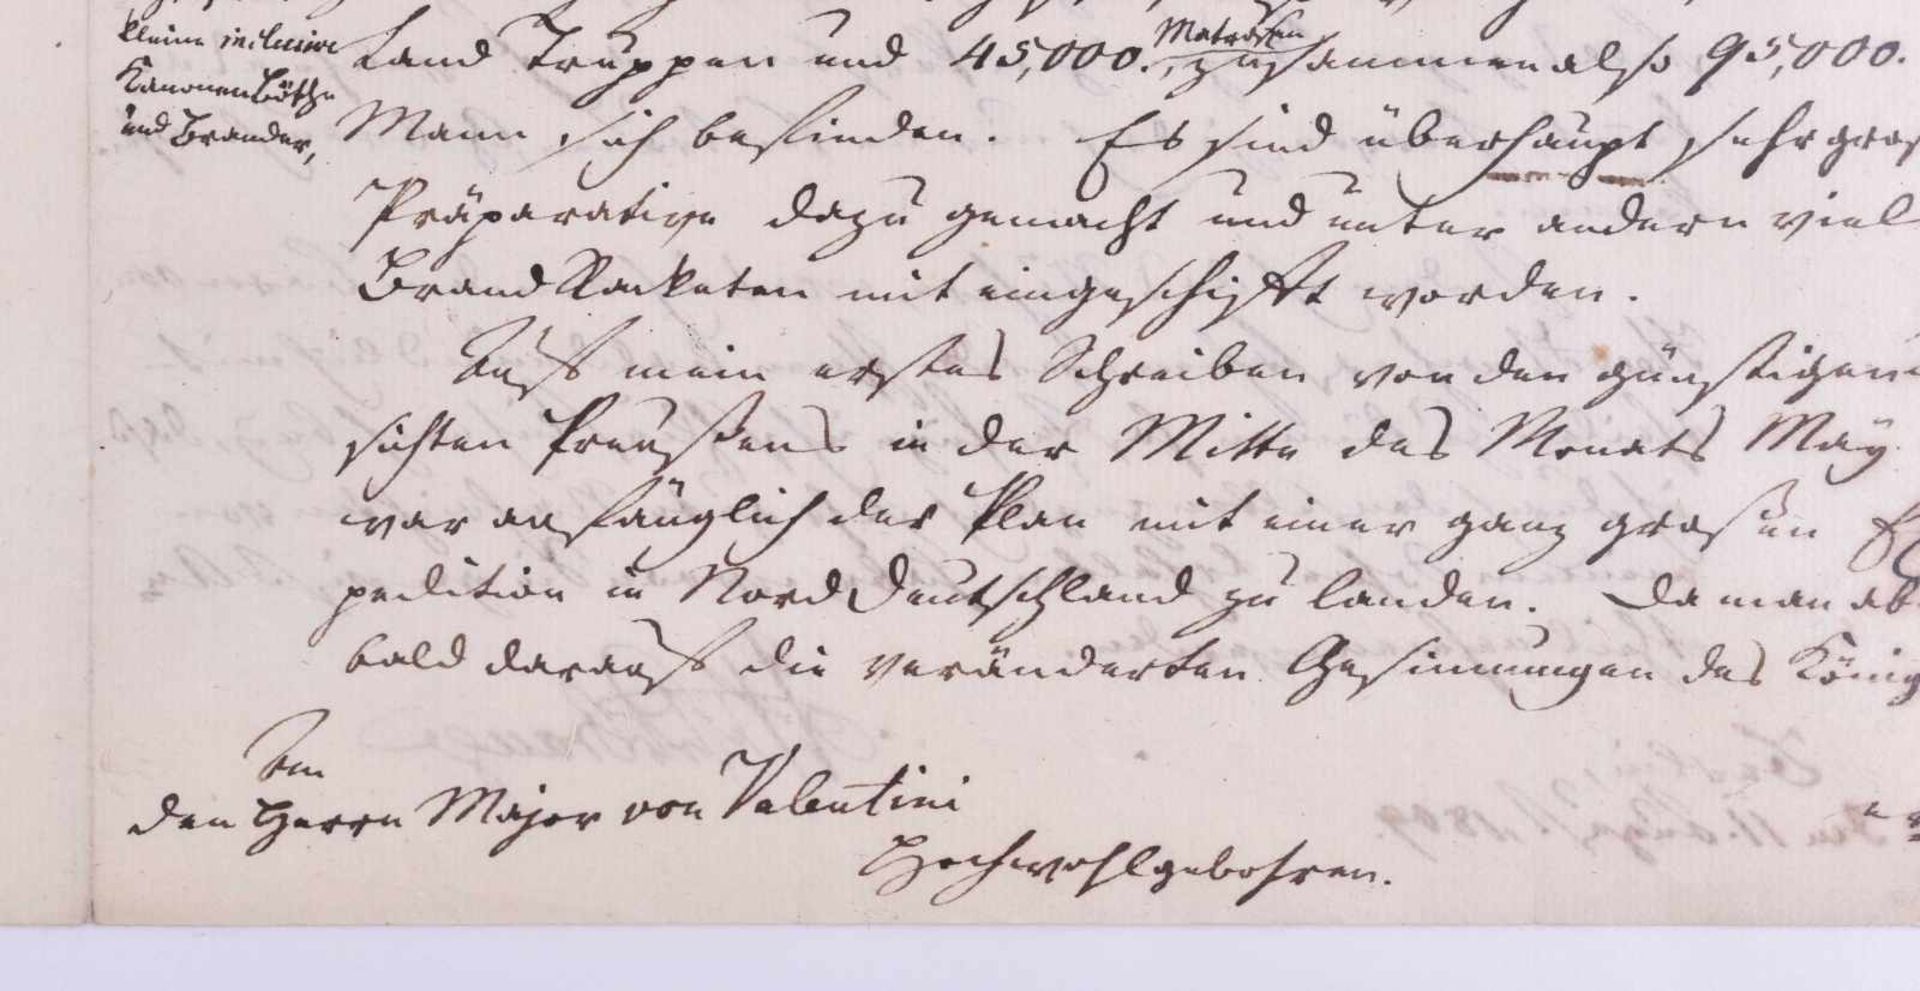 kleine inclusive
Kanonen Böthe
und Brander,
Land Truppen und 45,000. Matrosen, zusammen also 95,000.
Mann sich befinden. Es sind überhaupt sehr gros
Präparative dazu gemacht und unter andern viel
Brand Racketen mit eingeschifft worden.
Auf mein erstes Schreiben von den günstigen
sichten Preußens in der Mitte des Monats May
war anfänglich der Plan mit einer ganz großen Ex
pedition in Nord Deutschland zu landen. Da man ab
bald darauf die veränderten Gesinnungen des König
An
den Herrn Major von Valentini
Hochwohlgebohren.